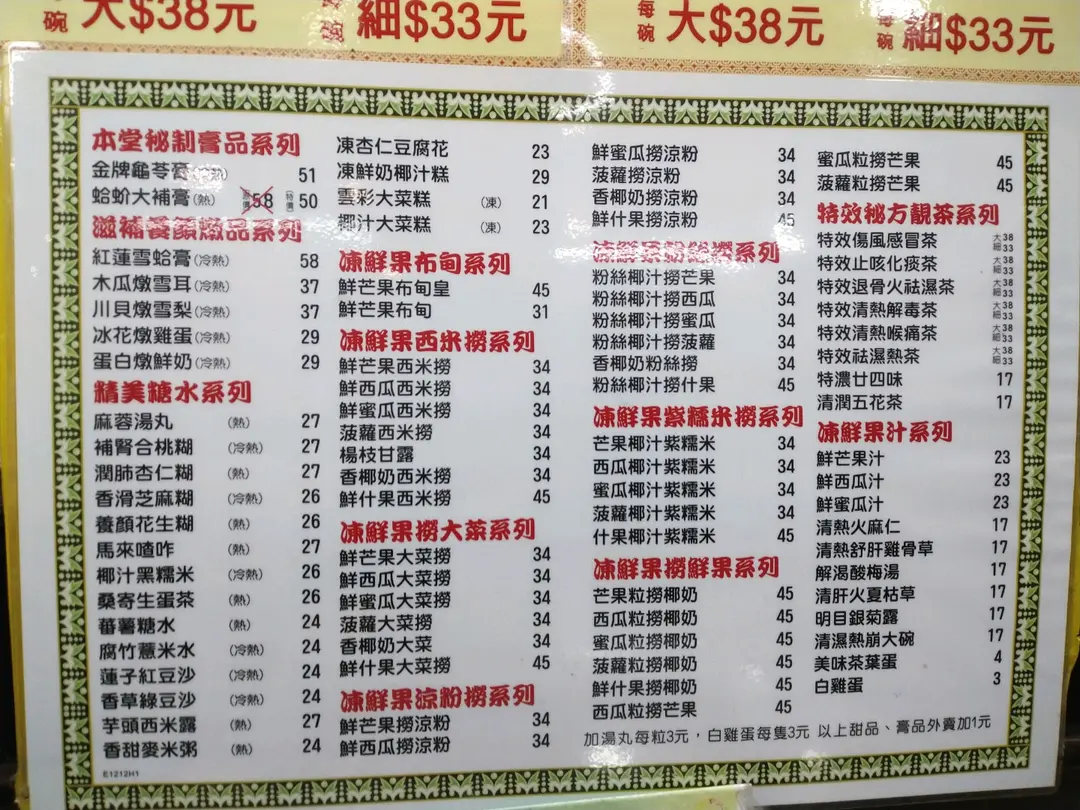 每碗 大$38元
細$33元
每碗 大$38元
每碗 細$33元
本堂秘制膏品系列
金牌龜苓膏 51
蛤蚧大補膏(熱) 58 特價 50
滋補養顏燉品系列
紅蓮雪蛤膏(冷熱) 58
木瓜燉雪耳(冷熱) 37
川貝燉雪梨(冷熱) 37
冰花燉雞蛋(冷熱) 29
蛋白燉鮮奶(冷熱) 29
精美糖水系列
麻蓉湯丸 (熱) 27
補腎合桃糊 (冷熱) 27
潤肺杏仁糊 (熱) 27
香滑芝麻糊 (冷熱) 26
養顏花生糊 (熱) 26
馬來喳咋 (熱) 27
椰汁黑糯米 (冷熱) 26
桑寄生蛋茶 (熱) 26
蕃薯糖水 (熱) 24
腐竹薏米水 (冷熱) 24
蓮子紅豆沙 (冷熱) 24
香草綠豆沙 (冷熱) 24
芋頭西米露 (熱) 27
香甜麥米粥 (熱) 24
E1212H1
凍杏仁豆腐花 23
凍鮮奶椰汁糕 29
雲彩大菜糕 (凍) 21
椰汁大菜糕 (凍) 23
凍鮮果布甸系列
鮮芒果布甸皇 45
鮮芒果布甸 31
凍鮮果西米撈系列
鮮芒果西米撈 34
鮮西瓜西米撈 34
鮮蜜瓜西米撈 34
菠蘿西米撈 34
楊枝甘露 34
香椰奶西米撈 34
鮮什果西米撈 45
凍鮮果撈大菜系列
鮮芒果大菜撈 34
鮮西瓜大菜撈 34
鮮蜜瓜大菜撈 34
菠蘿大菜撈 34
香椰奶大菜 34
鮮什果大菜撈 45
凍鮮果涼粉撈系列
鮮芒果撈涼粉 34
鮮西瓜撈涼粉 34
鮮蜜瓜撈涼粉 34
菠蘿撈涼粉 34
香椰奶撈涼粉 34
鮮什果撈涼粉 45
凍鮮果粉絲撈系列
粉絲椰汁撈芒果 34
粉絲椰汁撈西瓜 34
粉絲椰汁撈蜜瓜 34
粉絲椰汁撈菠蘿 34
香椰奶粉絲撈 34
粉絲椰汁撈什果 45
凍鮮果紫糯米撈系列
芒果椰汁紫糯米 34
西瓜椰汁紫糯米 34
蜜瓜椰汁紫糯米 34
菠蘿椰汁紫糯米 34
什果椰汁紫糯米 45
凍鮮果撈鮮果系列
芒果粒撈椰奶 45
西瓜粒撈椰奶 45
蜜瓜粒撈椰奶 45
菠蘿粒撈椰奶 45
鮮什果撈椰奶 45
西瓜粒撈芒果 45
蜜瓜粒撈芒果 45
菠蘿粒撈芒果 45
特效秘方靚茶系列
特效傷風感冒茶 大38 細33
特效止咳化痰茶 大38 細33
特效退骨火祛濕茶 大38 細33
特效清熱解毒茶 大38 細33
特效清熱喉痛茶 大38 細33
特效祛濕熱茶 大38 細33
特濃廿四味 17
清潤五花茶 17
凍鮮果汁系列
鮮芒果汁 23
鮮西瓜汁 23
鮮蜜瓜汁 23
清熱火麻仁 17
清熱舒肝雞骨草 17
解渴酸梅湯 17
清肝火夏枯草 17
明目銀菊露 17
清濕熱崩大碗 17
美味茶葉蛋 4
白雞蛋 3
加湯丸每粒3元，白雞蛋每隻3元 以上甜品、膏品外賣加1元